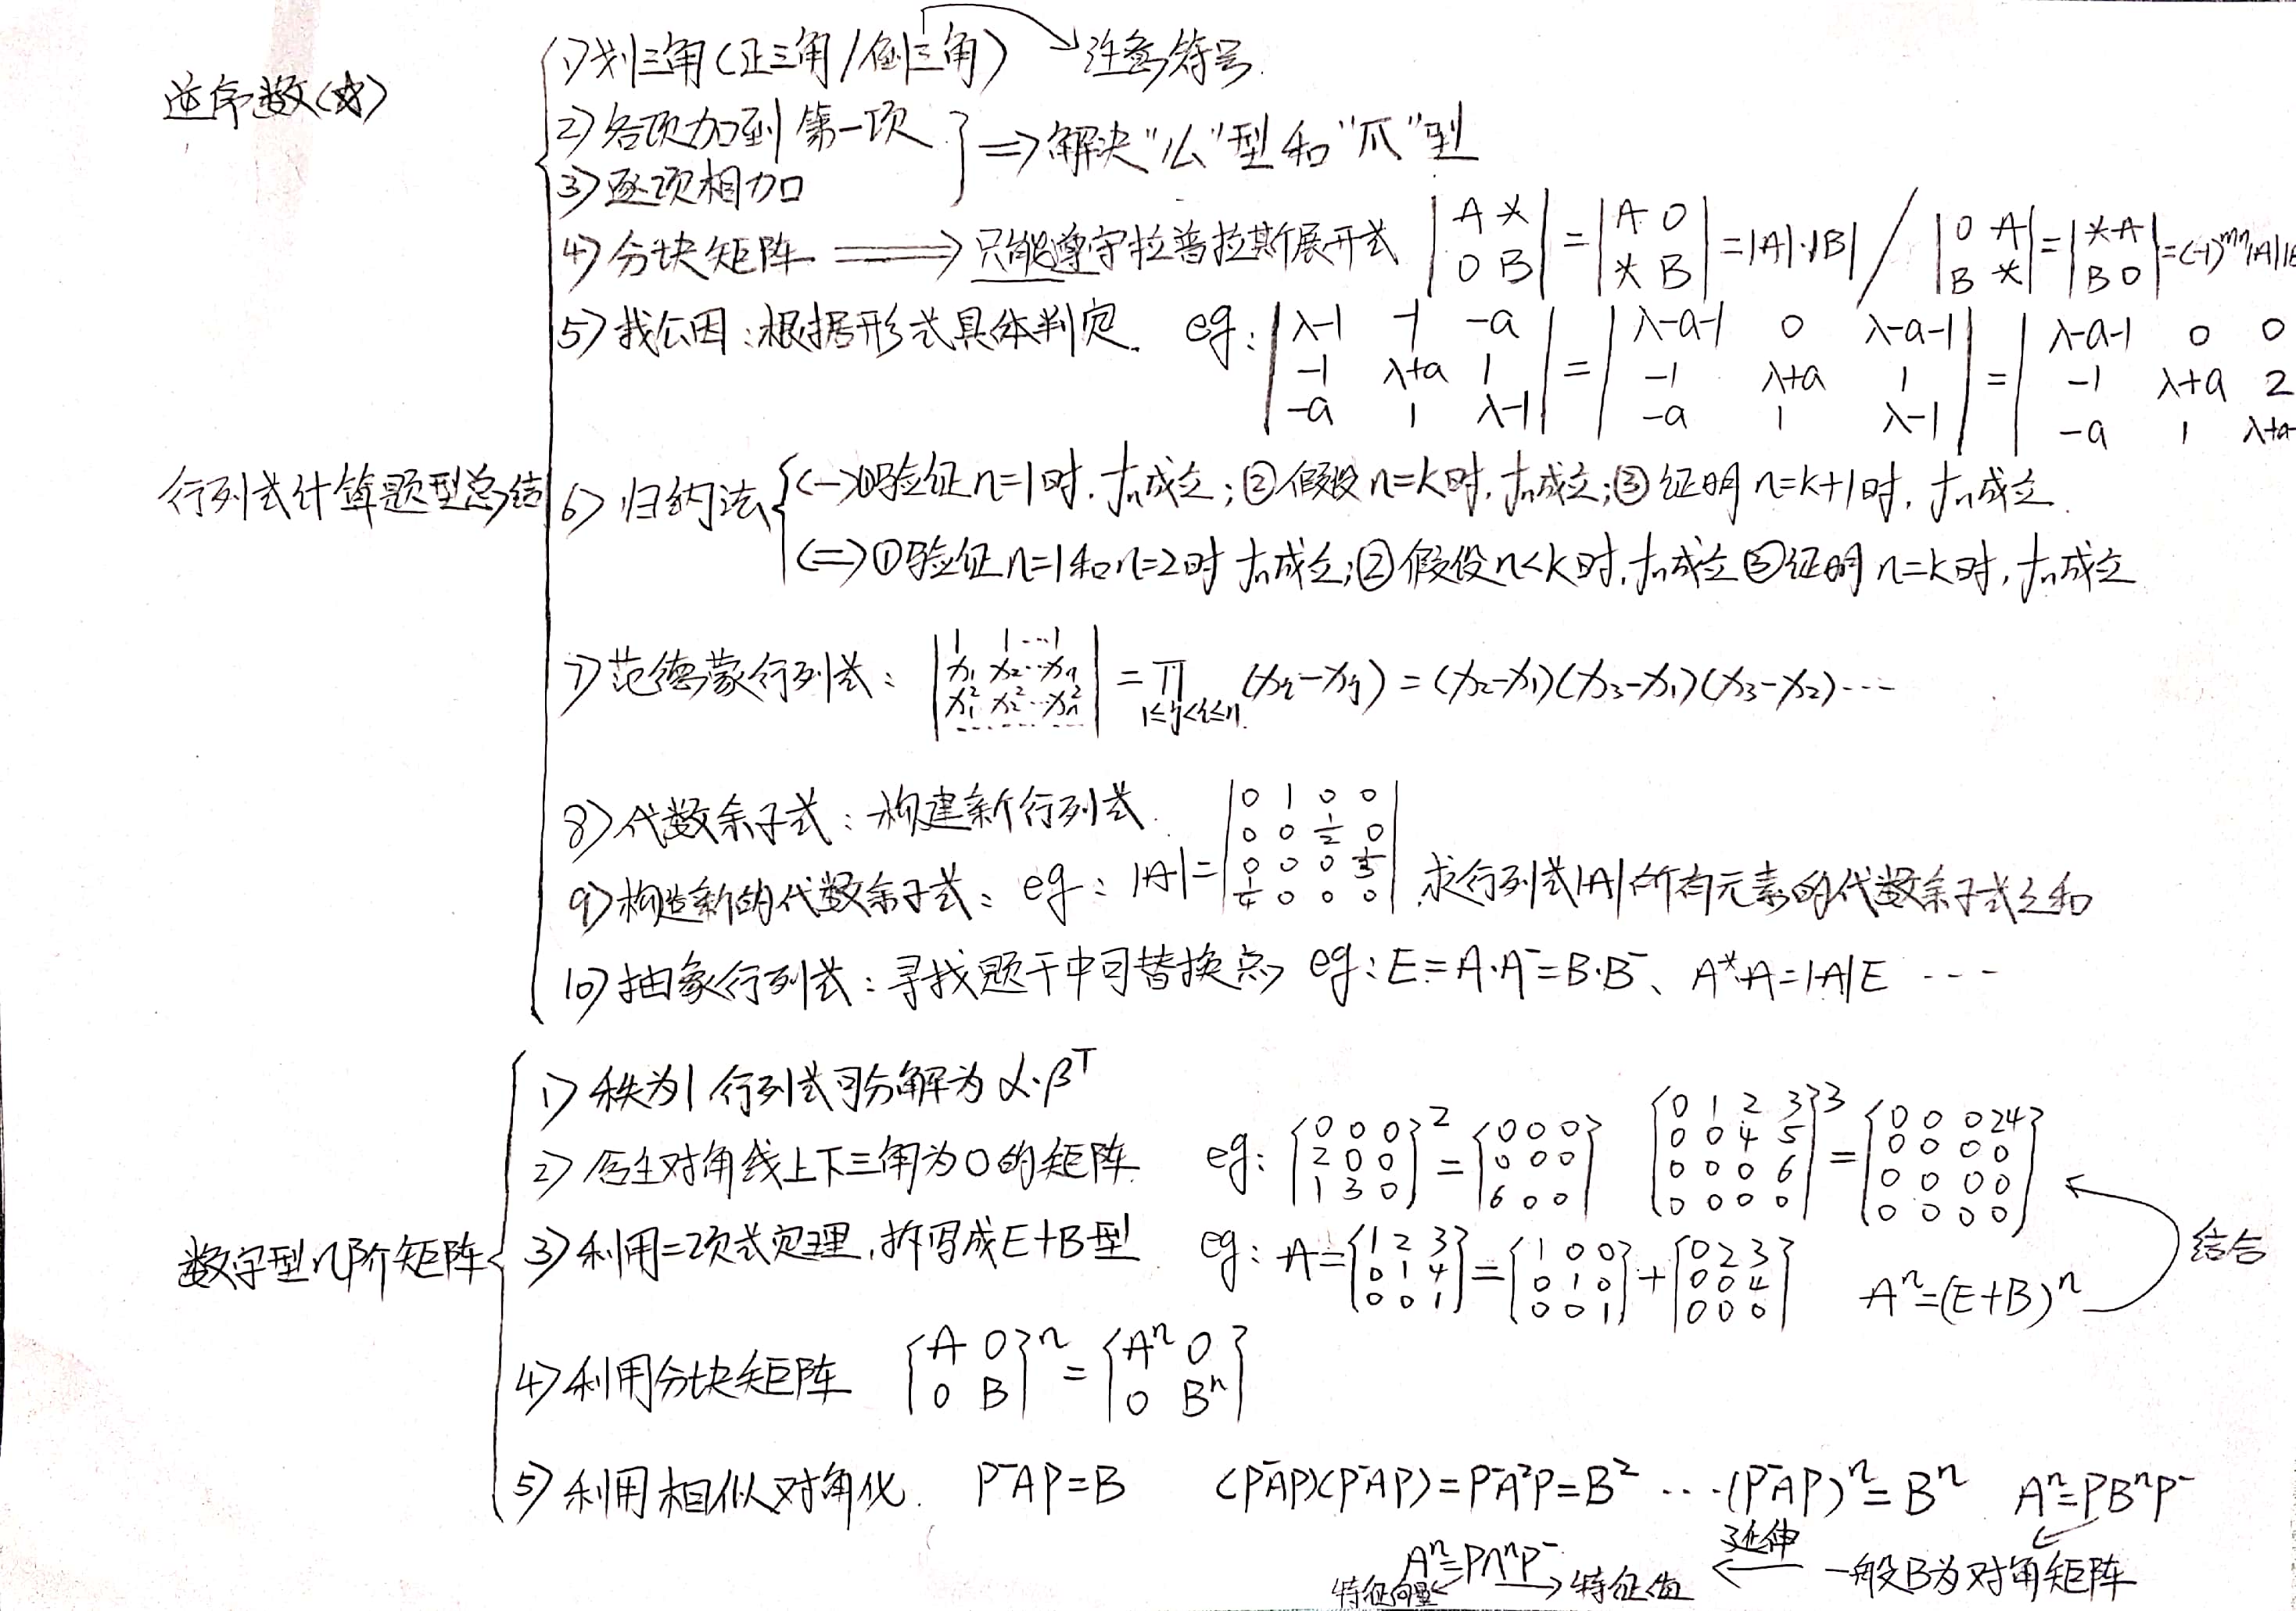 逆序数(求)
行列式计算题型总结
1)划三角(正三角/倒三角) → 注意符号.
2)各项加到第一项
3)逐项相加
} ⇒ 解决"么"型和"爪"型
4)分块矩阵 ⟹ 只能遵守拉普拉斯展开式 |A * ; 0 B| = |A 0 ; * B| = |A|·|B| / |0 A ; B *| = |* A ; B 0| = (-1)^{mn}|A||B
5)找公因:根据形式具体判定. eg: |λ-1 -1 -a ; -1 λ+a 1 ; -a 1 λ-1| = |λ-a-1 0 λ-a-1 ; -1 λ+a 1 ; -a 1 λ-1| = |λ-a-1 0 0 ; -1 λ+a 2 ; -a 1 λ+a
6)归纳法
(一)①验证n=1时,fn成立;②假设n=k时,fn成立;③证明n=k+1时,fn成立.
(二)①验证n=1和n=2时fn成立;②假设n<k时,fn成立③证明n=k时,fn成立
7)范德蒙行列式: |1 1 … 1 ; x₁ x₂ … xₙ ; x₁² x₂² … xₙ² ; ……| = ∏_{1≤j<i≤n} (xᵢ-xⱼ) = (x₂-x₁)(x₃-x₁)(x₃-x₂)…
8)代数余子式:构建新行列式.
9)构造新的代数余子式: eg: |A| = |0 1 0 0 ; 0 0 1/2 0 ; 0 0 0 1/3 ; 1/4 0 0 0| 求行列式|A|所有元素的代数余子式之和
10)抽象行列式:寻找题干中可替换点 eg:E=A·A⁻=B·B⁻、A*·A=|A|E …
数字型n阶矩阵
1)秩为1行列式可分解为α·βᵀ
2)含主对角线上下三角为0的矩阵. eg: [0 0 0 ; 2 0 0 ; 1 3 0]² = [0 0 0 ; 0 0 0 ; 6 0 0] [0 1 2 3 ; 0 0 4 5 ; 0 0 0 6 ; 0 0 0 0]³ = [0 0 0 24 ; 0 0 0 0 ; 0 0 0 0 ; 0 0 0 0]
3)利用二项式定理,拆写成E+B型 eg: A=[1 2 3 ; 0 1 4 ; 0 0 1] = [1 0 0 ; 0 1 0 ; 0 0 1] + [0 2 3 ; 0 0 4 ; 0 0 0] Aⁿ=(E+B)ⁿ
结合
4)利用分块矩阵 [A 0 ; 0 B]ⁿ = [Aⁿ 0 ; 0 Bⁿ]
5)利用相似对角化. P⁻AP=B (P⁻AP)(P⁻AP)=P⁻A²P=B² …(P⁻AP)ⁿ=Bⁿ Aⁿ=PBⁿP⁻
一般B为对角矩阵
延伸
Aⁿ=PΛⁿP⁻
特征向量 ← → 特征值